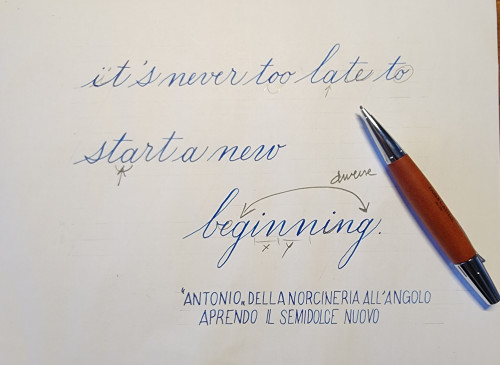 it's never too late to
start a new
diverse
beginning.
x y
"ANTONIO„ DELLA NORCINERIA ALL'ANGOLO
APRENDO IL SEMIDOLCE NUOVO